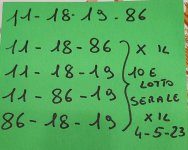 11-18-19-86
11-18-86
11-18-19
11-86-19
86-18-19
X IL
10 E
LOTTO
SERALE
X IL
4-5-23